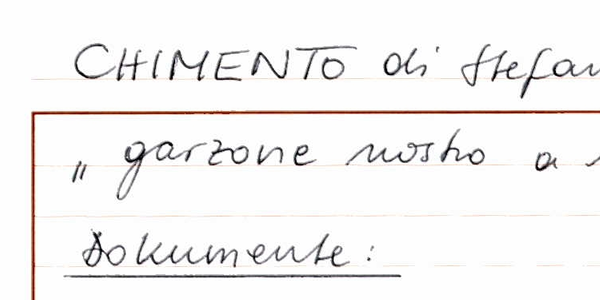 CHIMENTO di Stefan
„ garzone nostro a
Dokumente: